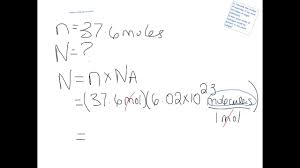 n = 37.6 moles
N = ?
N = n × NA
= (37.6 mol)(6.02 × 10²³ molecules / 1 mol)
=